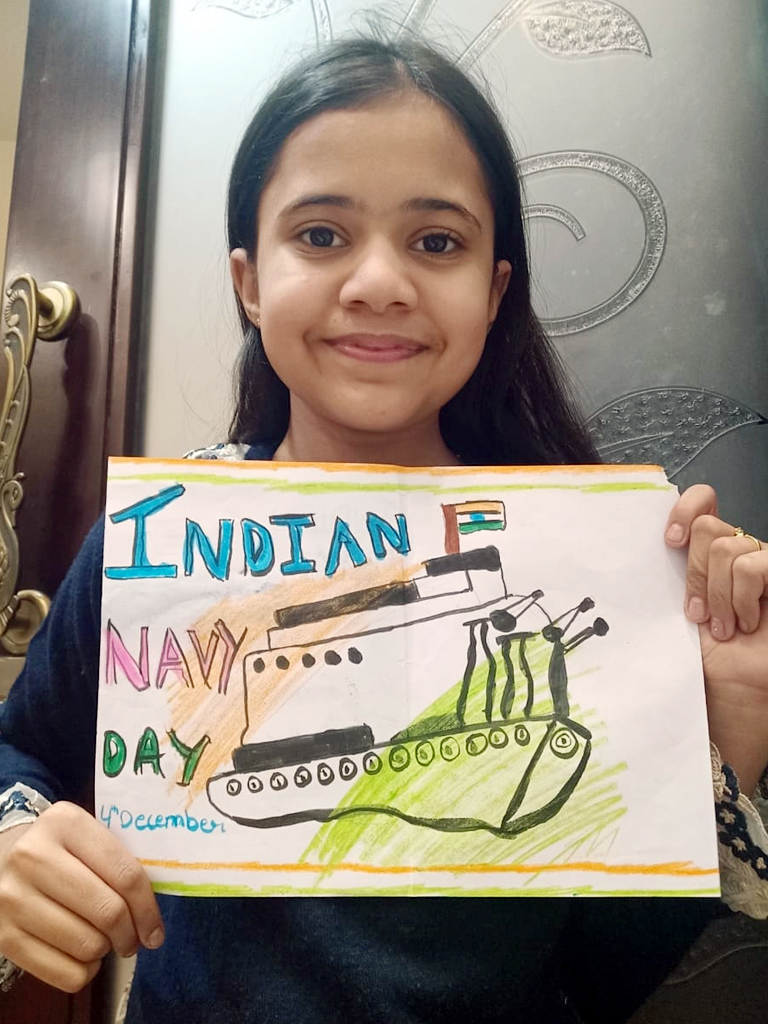 INDIAN
NAVY
DAY
4th December